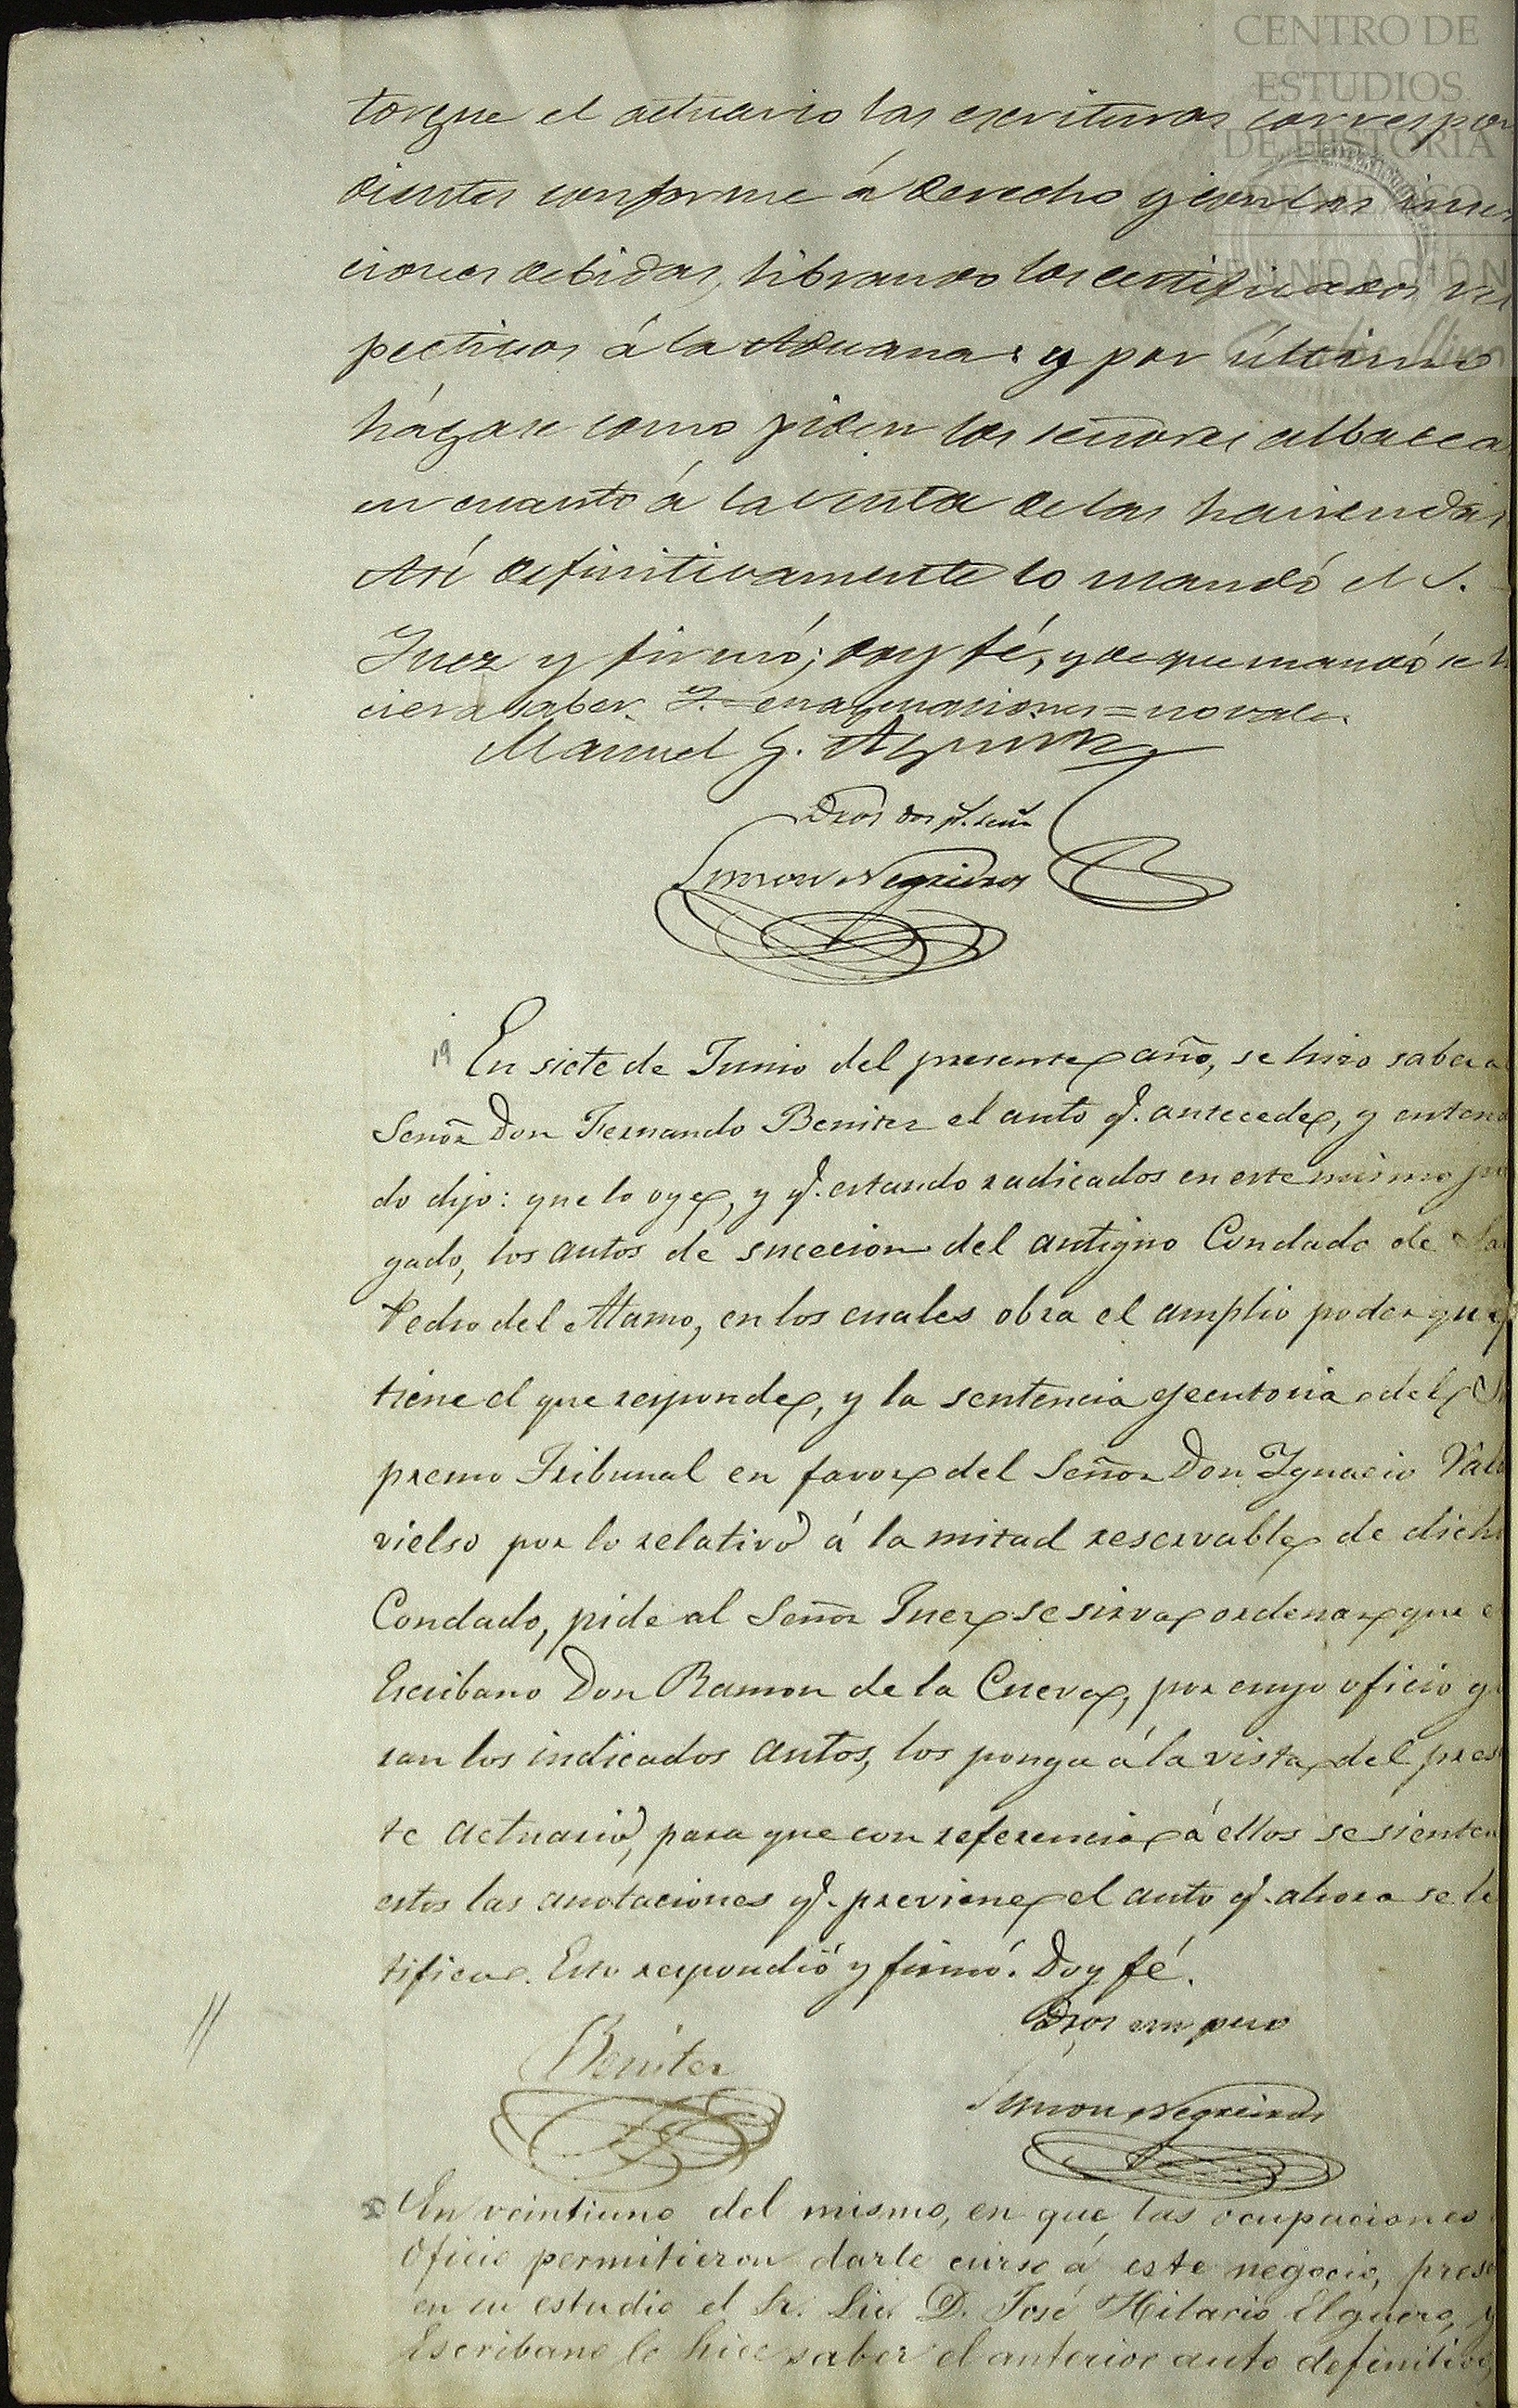 CENTRO DE
ESTUDIOS
DE HISTORIA
DE MEXICO
FUNDACIÓN
torgue el actuario las escrituras correspon
dientes conforme á derecho y con las inser
ciones debidas, librando los certificados res
pectivos á la Aduana: y por último
hágase como piden los señores albacea
en cuanto á la venta de las haciendas
Así definitivamente lo mandó el S.
Juez y firmó; doy fé, y de que mandó se hi
ciera saber. T.= enagenaciones = no vale.
Manuel G. Aguirre
dos
Simon Negreiros
19 En siete de Junio del presente año, se hizo saber a
Señor Don Fernando Benitez el auto q. antecede, y entera
do dijo: que lo oye, y q. estando radicados en este mismo juz
gado, los autos de sucecion del antiguo Condado de Sa
Pedro del Alamo, en los cuales obra el amplio poder que
tiene el que responde, y la sentencia ejecutoria del Su
premo Tribunal en favor del Señor Don Ygnacio Val
vielso por lo relativo á la mitad reservable de dicho
Condado, pide al Señor Juez se sirva ordenar que e
Escribano Don Ramon de la Cueva, por cuyo oficio gi
ran los indicados autos, los ponga á la vista del presen
te actuario, para que con referencia á ellos se sienten
estos las anotaciones q. previene el auto q. ahora se le
tifica. Esto respondió y firmó. Doy fé.
Benitez
Simon Negreiros
En veintiuno del mismo, en que las ocupaciones
Oficio permitieron darle curso á este negocio, prese
en su estudio el Sr. Lic. D. José Hilario Elguero, y
Escribano le hice saber el anterior auto definitivo,